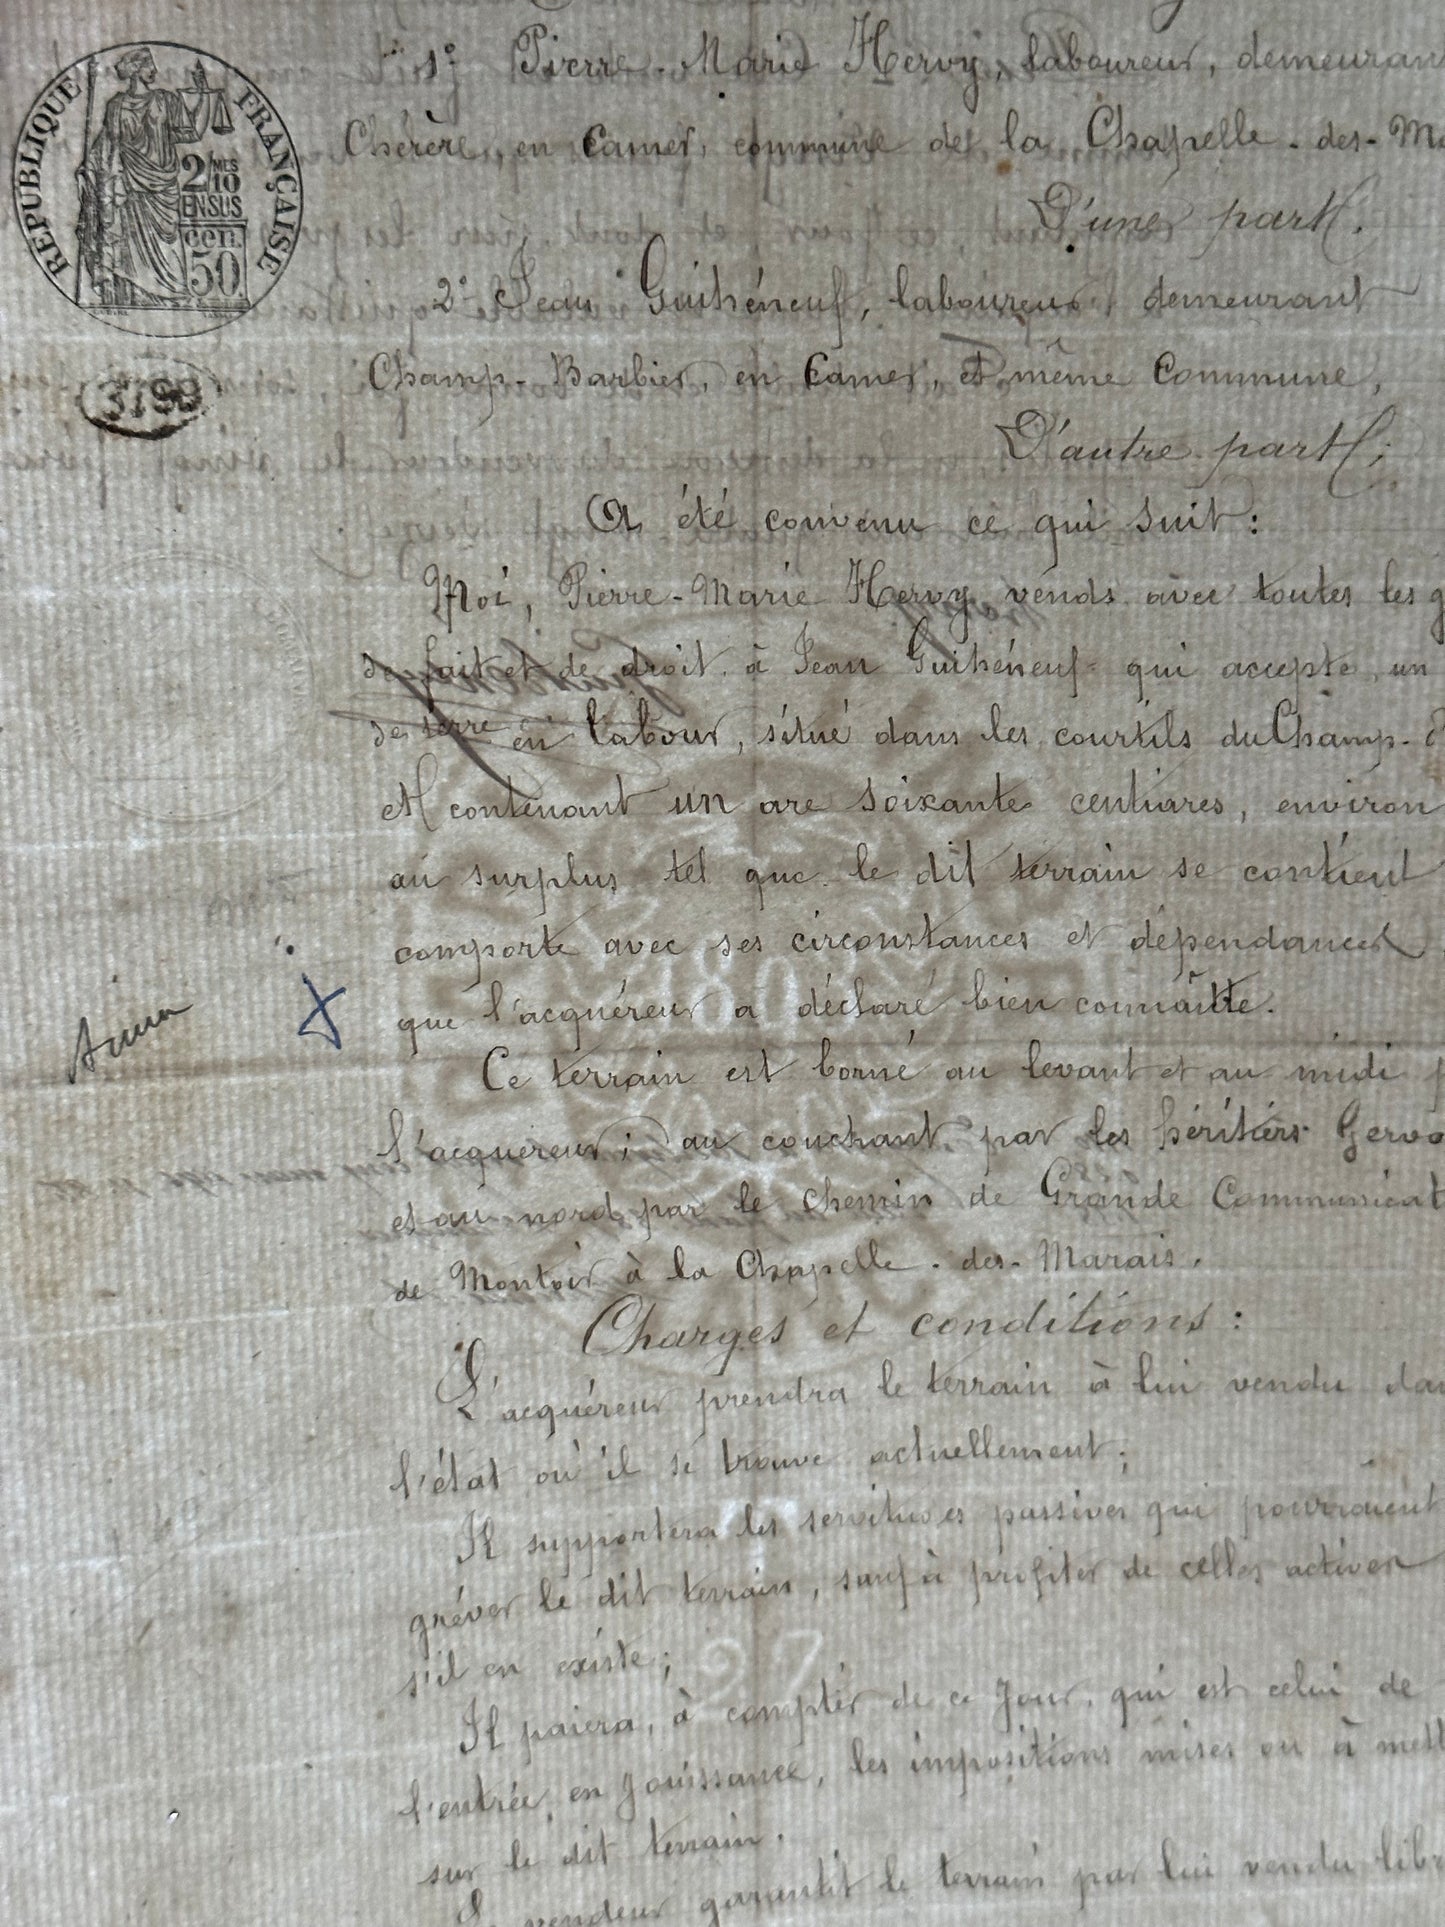 RÉPUBLIQUE FRANÇAISE
2/10 MES
EN SUS
cen.
50
3798
1° Pierre-Marie Hervy, laboureur, demeuran
Chérère, en Camer, commune de la Chapelle-des-Ma
D'une part.
2° Jean Guihéneuf, laboureur, demeurant
Champ-Barbier, en Camer, même Commune,
D'autre part;
A été convenu ce qui suit:
Moi, Pierre-Marie Hervy vends avec toutes les g
de fait et de droit, à Jean Guihéneuf qui accepte, un
de terre en labour, situé dans les courtils du Champ-
et contenant un are soixante centiares, environ
au surplus tel que le dit terrain se contient
comporte avec ses circonstances et dépendances
que l'acquéreur a déclaré bien connaître.
Anna
Ce terrain est borné au levant et au midi p
l'acquéreur; au couchant par les héritiers Gervo
et au nord par le chemin de Grande Communicat
de Montoir à la Chapelle-des-Marais.
Charges et conditions:
L'acquéreur prendra le terrain à lui vendu da
l'état où il se trouve actuellement;
Il supportera les servitudes passives qui pourraient
gréver le dit terrain, sauf à profiter de celles actives
s'il en existe;
27
Il paiera, à compter de ce jour, qui est celui de
l'entrée en jouissance, les impositions mises ou à mett
sur le dit terrain.
vendeur garantit le terrain par lui vendu libr